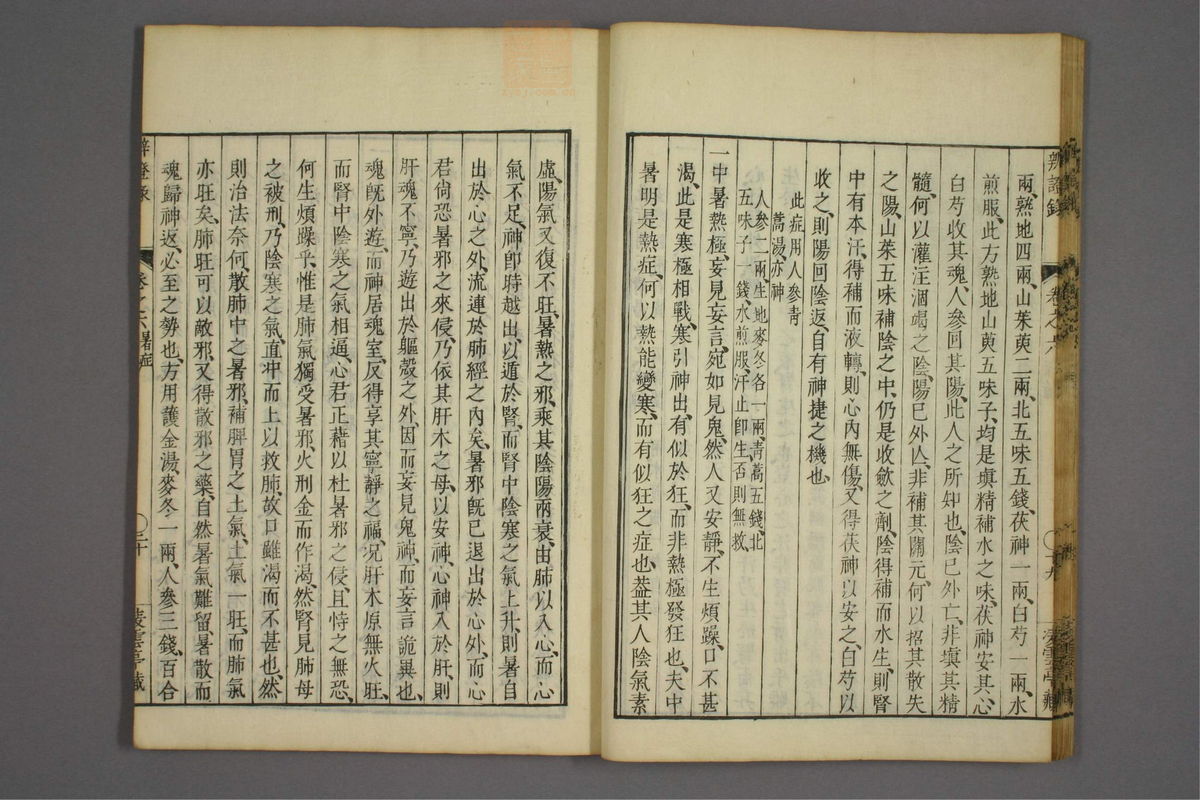 辨證錄 卷之六 十九
兩熟地四兩、山茱萸二兩、北五味五錢、茯神一兩、白芍一兩、水
煎服、此方熟地山萸五味子、均是塡精補水之味、茯神安其心、
白芍收其魂、人參回其陽、此人之所知也、陰已外亡、非塡其精
髓、何以灌注涸竭之陰、陽已外亾、非補其關元、何以招其散失
之陽、山茱五味補陰之中、仍是收斂之劑、陰得補而水生、則腎
中有本、汗得補而液轉、則心內無傷、又得茯神以安之、白芍以
收之、則陽回陰返、自有神捷之機也、
此症用人參靑
蒿湯亦神
人參二兩、生地麥冬各一兩、靑蒿五錢、北
五味子一錢、水煎服、汗止卽生、否則無救
一中暑熱極、妄見妄言、宛如見鬼、然人又安靜、不生煩躁、口不甚
渴、此是寒極相戰、寒引神出、有似於狂、而非熱極發狂也、夫中
暑明是熱症、何以熱能變寒、而有似狂之症也、葢其人陰氣素
虛、陽氣又復不旺、暑熱之邪、乘其陰陽兩衰、由肺以入心、而心
氣不足、神卽時越出、以遁於腎、而腎中陰寒之氣上升、則暑自
出於心之外、流連於肺經之內矣、暑邪旣已退出於心外、而心
君尙恐暑邪之來侵、乃依其肝木之母、以安神、心神入於肝、則
肝魂不寧、乃遊出於軀殼之外、因而妄見鬼神、而妄言詭異也、
魂旣外遊、而神居魂室、反得享其寧靜之福、况肝木原無火旺、
而腎中陰寒之氣相逼、心君正藉以杜暑邪之侵、且恃之無恐、
何生煩躁乎、惟是肺氣獨受暑邪、火刑金而作渴、然腎見肺母
之被刑、乃陰寒之氣、直冲而上以救肺、故口雖渴而不甚也、然
則治法奈何、散肺中之暑邪、補脾胃之土氣、土氣一旺、而肺氣
亦旺矣、肺旺可以敵邪、又得散邪之藥、自然暑氣難留、暑散而
魂歸神返、必至之勢也、方用護金湯、麥冬一兩、人參三錢、百合
辨證錄 卷之六 暑症 二十 凌雲亭藏